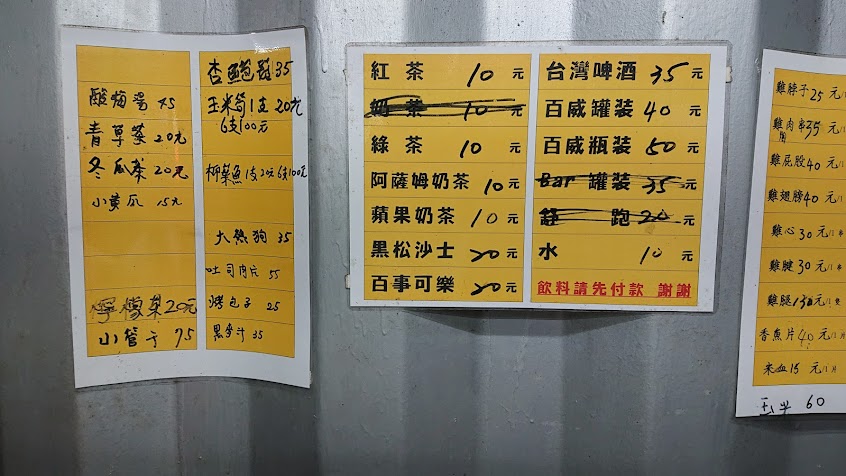 酸梅湯 45
青草茶 20元
冬瓜茶 20元
小黃瓜 15元
檸檬茶20元
小管子 75
杏鮑菇 35
玉米筍1支20元
6支100元
柳葉魚1支20元6支100元
大熱狗 35
吐司肉片 55
烤包子 25
黑麥汁 35
紅茶 10 元
奶茶 10 元
綠茶 10 元
阿薩姆奶茶 10 元
蘋果奶茶 10 元
黑松沙士 20 元
百事可樂 20 元
台灣啤酒 35 元
百威罐裝 40 元
百威瓶裝 50 元
Bar 罐裝 35 元
舒跑 20 元
水 10 元
飲料請先付款 謝謝
雞脖子25 元/1
雞肉串35 元/1
雞屁股40 元/1
雞翅膀40 元/1
雞心30 元/1串
雞腱30 元/1
雞腿130元/1隻
香魚片40 元/1片
米血15 元/1片
60